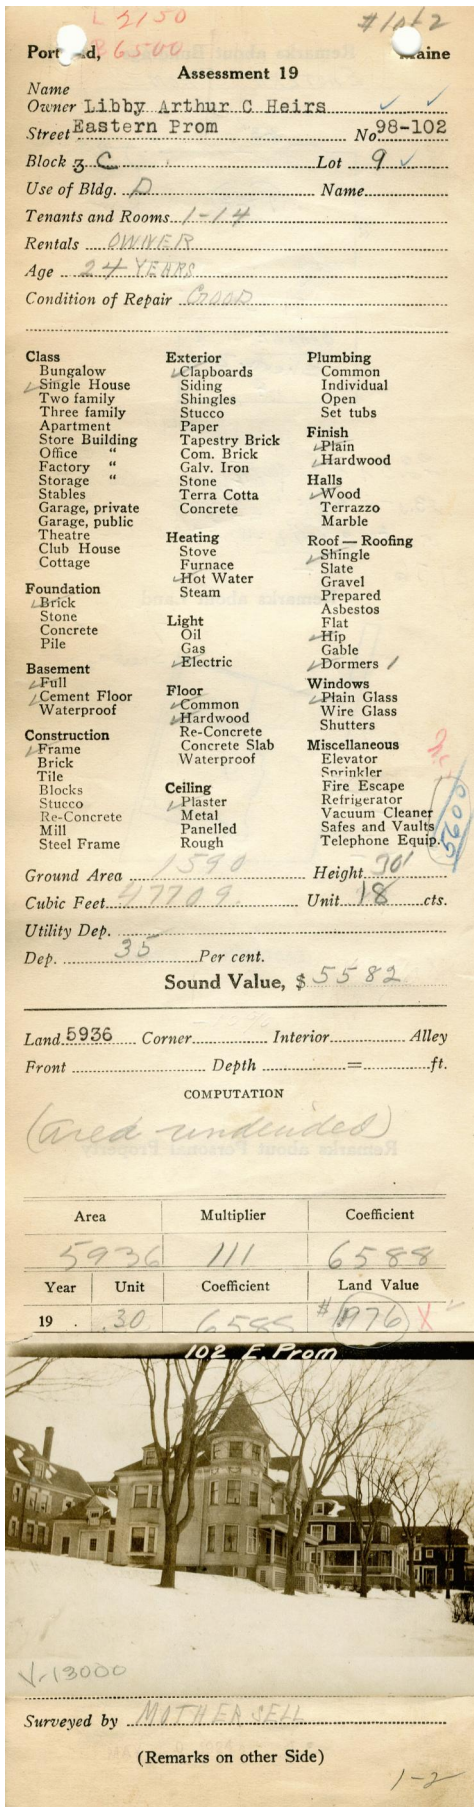 L 2150
B 6500
#1 of 2
Port nd, Maine
Assessment 19
Name
Owner Libby Arthur C Heirs
Street Eastern Prom No 98-102
Block 3 C Lot 9
Use of Bldg. D Name
Tenants and Rooms 1-14
Rentals OWNER
Age 24 YEARS
Condition of Repair GOOD
Class
Bungalow
Single House
Two family
Three family
Apartment
Store Building
Office "
Factory "
Storage "
Stables
Garage, private
Garage, public
Theatre
Club House
Cottage
Foundation
Brick
Stone
Concrete
Pile
Basement
Full
Cement Floor
Waterproof
Construction
Frame
Brick
Tile
Blocks
Stucco
Re-Concrete
Mill
Steel Frame
Exterior
Clapboards
Siding
Shingles
Stucco
Paper
Tapestry Brick
Com. Brick
Galv. Iron
Stone
Terra Cotta
Concrete
Heating
Stove
Furnace
Hot Water
Steam
Light
Oil
Gas
Electric
Floor
Common
Hardwood
Re-Concrete
Concrete Slab
Waterproof
Ceiling
Plaster
Metal
Panelled
Rough
Plumbing
Common
Individual
Open
Set tubs
Finish
Plain
Hardwood
Halls
Wood
Terrazzo
Marble
Roof — Roofing
Shingle
Slate
Gravel
Prepared
Asbestos
Flat
Hip
Gable
Dormers 1
Windows
Plain Glass
Wire Glass
Shutters
Miscellaneous
Elevator
Sprinkler
Fire Escape
Refrigerator
Vacuum Cleaner
Safes and Vaults
Telephone Equip.
Ground Area 1590 Height 30'
Cubic Feet 47709. Unit 18 cts.
Utility Dep.
Dep. 35 Per cent.
Sound Value, $ 5582
Land 5936 Corner Interior Alley
Front Depth = ft.
COMPUTATION
(area undivided)
Area Multiplier Coefficient
5936 111 6588
Year Unit Coefficient Land Value
19 . .30 6588 $1976 X
102 E. Prom
V-13000
Surveyed by MOTHERSELL
(Remarks on other Side)
1-2